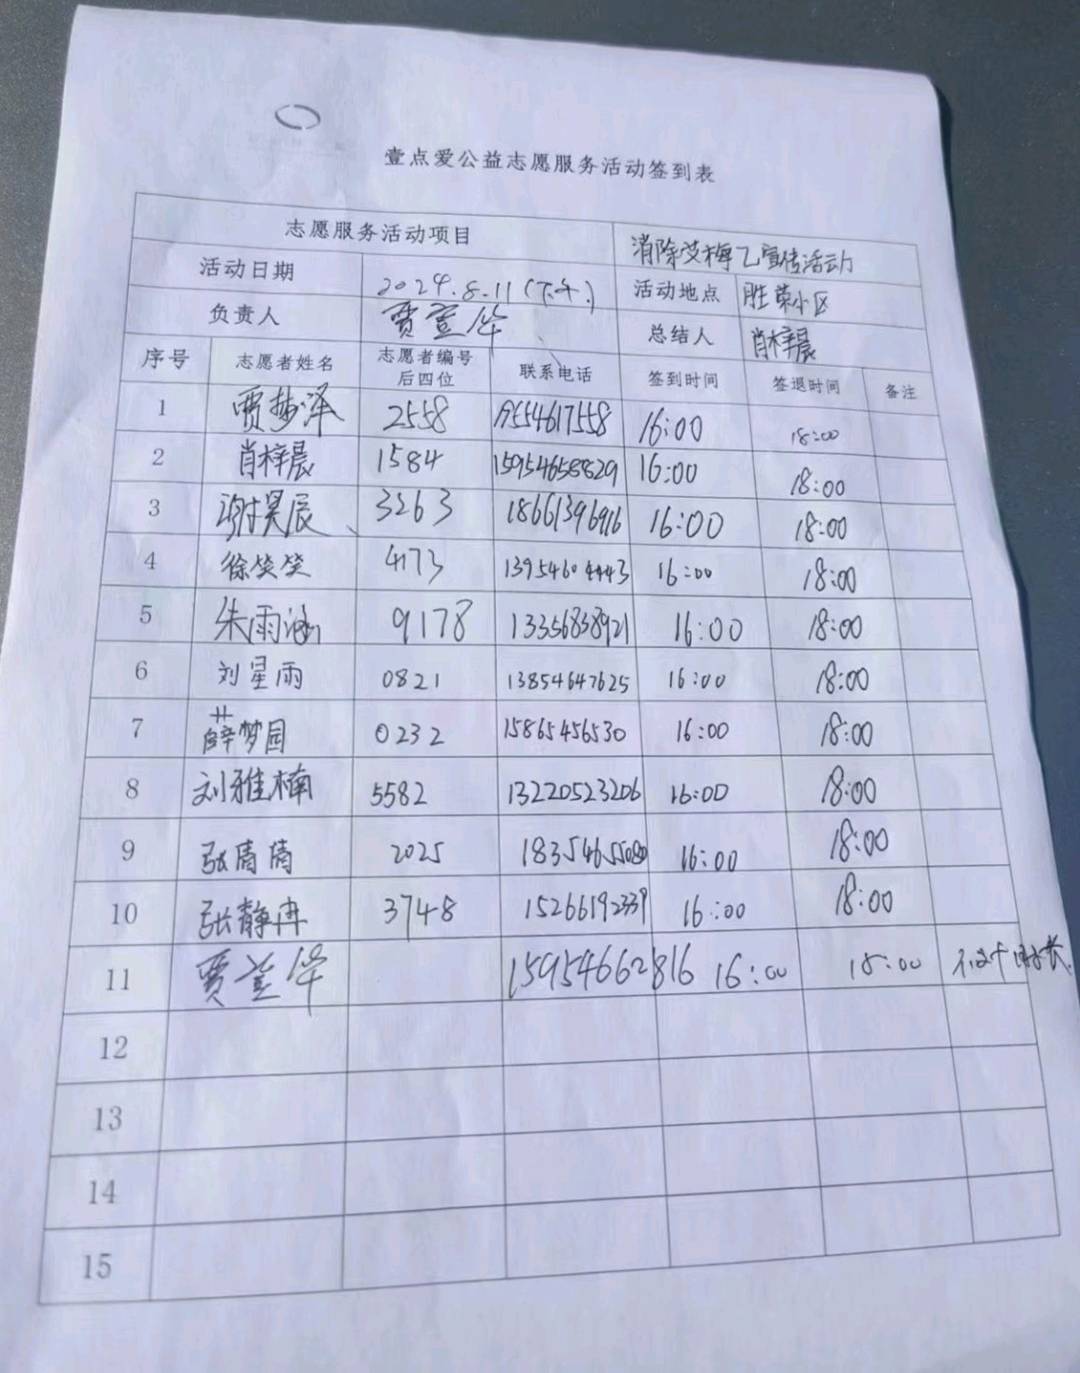 壹点爱公益志愿服务活动签到表
志愿服务活动项目 消除艾梅乙宣传活动
活动日期 2024.8.11(下午) 活动地点 胜荣小区
负责人 贾萱华 总结人 肖梓晨
序号 志愿者姓名 志愿者编号后四位 联系电话 签到时间 签退时间 备注
1 贾梦泽 2558 19554617558 16:00 18:00
2 肖梓晨 1584 15954658829 16:00 18:00
3 谢昊辰 3263 18661396916 16:00 18:00
4 徐笑笑 4173 13954604443 16:00 18:00
5 朱雨涵 9178 13356838921 16:00 18:00
6 刘星雨 0821 13854647625 16:00 18:00
7 薛梦园 0232 15865456530 16:00 18:00
8 刘雅楠 5582 13220523206 16:00 18:00
9 张倩倩 2025 18354655080 16:00 18:00
10 张静冉 3748 15266192339 16:00 18:00
11 贾萱华 15954662816 16:00 18:00 时长
12
13
14
15